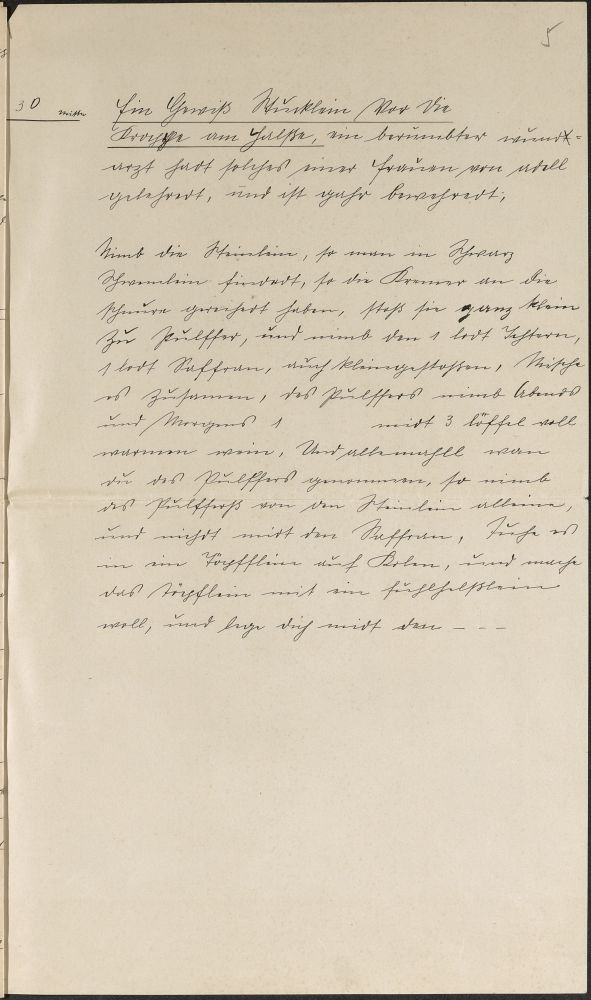 5
30 mitte
Ein Gewiß Stucklein Vor Die
Kroppe am Halße, ein berümbter wundt=
arzt hadt solches einer frauen von adell
gelehredt, und ist gahr bewehredt;
Nimb die Steinlein, so man in Schwarz
Schwemlein findedt, so die Kremer an die
schnure gereihedt haben, stoß sie ganz klein
Zu Pulffer, und nimb den 1 lodt
1 lodt Saffran, auch kleingestoßen, Mische
es Zusamen, des Pulffers nimb Abends
und Morgens 1 midt 3 löffel voll
warmen wein, Und allemahll wan
du des Pulffers genommen, so nimb
des Pulfferß von den Steinlein alleine,
und nichdt midt den Saffran, Tuhe es
in ein Töpfflein auf Kolen, und mache
das Töpflein mit ein
woll, und lege dich midt den - - -